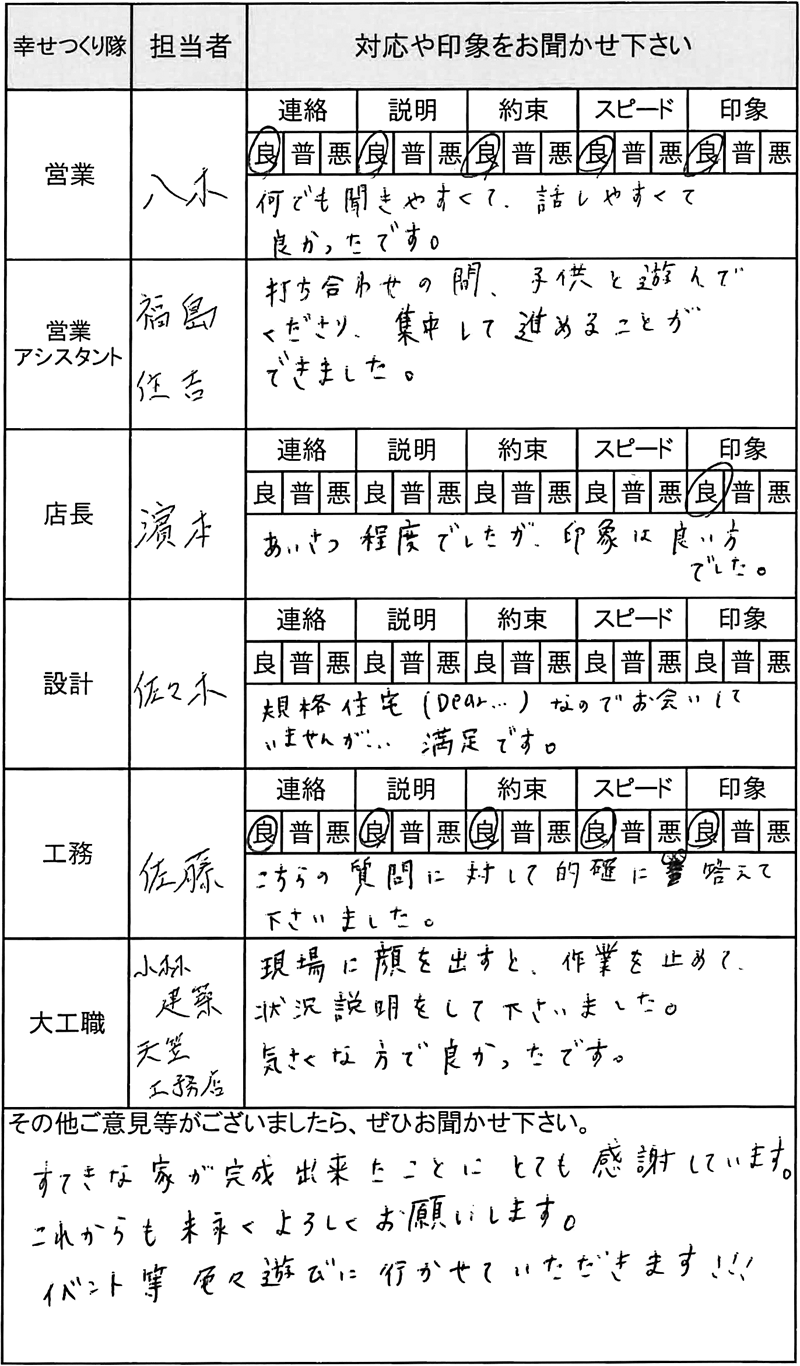 幸せつくり隊 担当者 対応や印象をお聞かせ下さい
営業 八木
連絡 説明 約束 スピード 印象
良 普 悪 良 普 悪 良 普 悪 良 普 悪 良 普 悪
何でも聞きやすくて、話しやすくて
良かったです。
営業
アシスタント
福島
住吉
打ち合わせの間、子供と遊んで
くださり、集中して進めることが
できました。
店長 濱本
連絡 説明 約束 スピード 印象
良 普 悪 良 普 悪 良 普 悪 良 普 悪 良 普 悪
あいさつ程度でしたが、印象は良い方
でした。
設計 佐々木
連絡 説明 約束 スピード 印象
良 普 悪 良 普 悪 良 普 悪 良 普 悪 良 普 悪
規格住宅(Dear...)なのでお会いして
いませんが... 満足です。
工務 佐藤
連絡 説明 約束 スピード 印象
良 普 悪 良 普 悪 良 普 悪 良 普 悪 良 普 悪
こちらの質問に対して的確に答えて
下さいました。
大工職
小林
建築
天笠
工務店
現場に顔を出すと、作業を止めて、
状況説明をして下さいました。
気さくな方で良かったです。
その他ご意見等がございましたら、ぜひお聞かせ下さい。
すてきな家が完成出来たことにとても感謝しています。
これからも末永くよろしくお願いします。
イベント等 色々遊びに行かせていただきます!!!